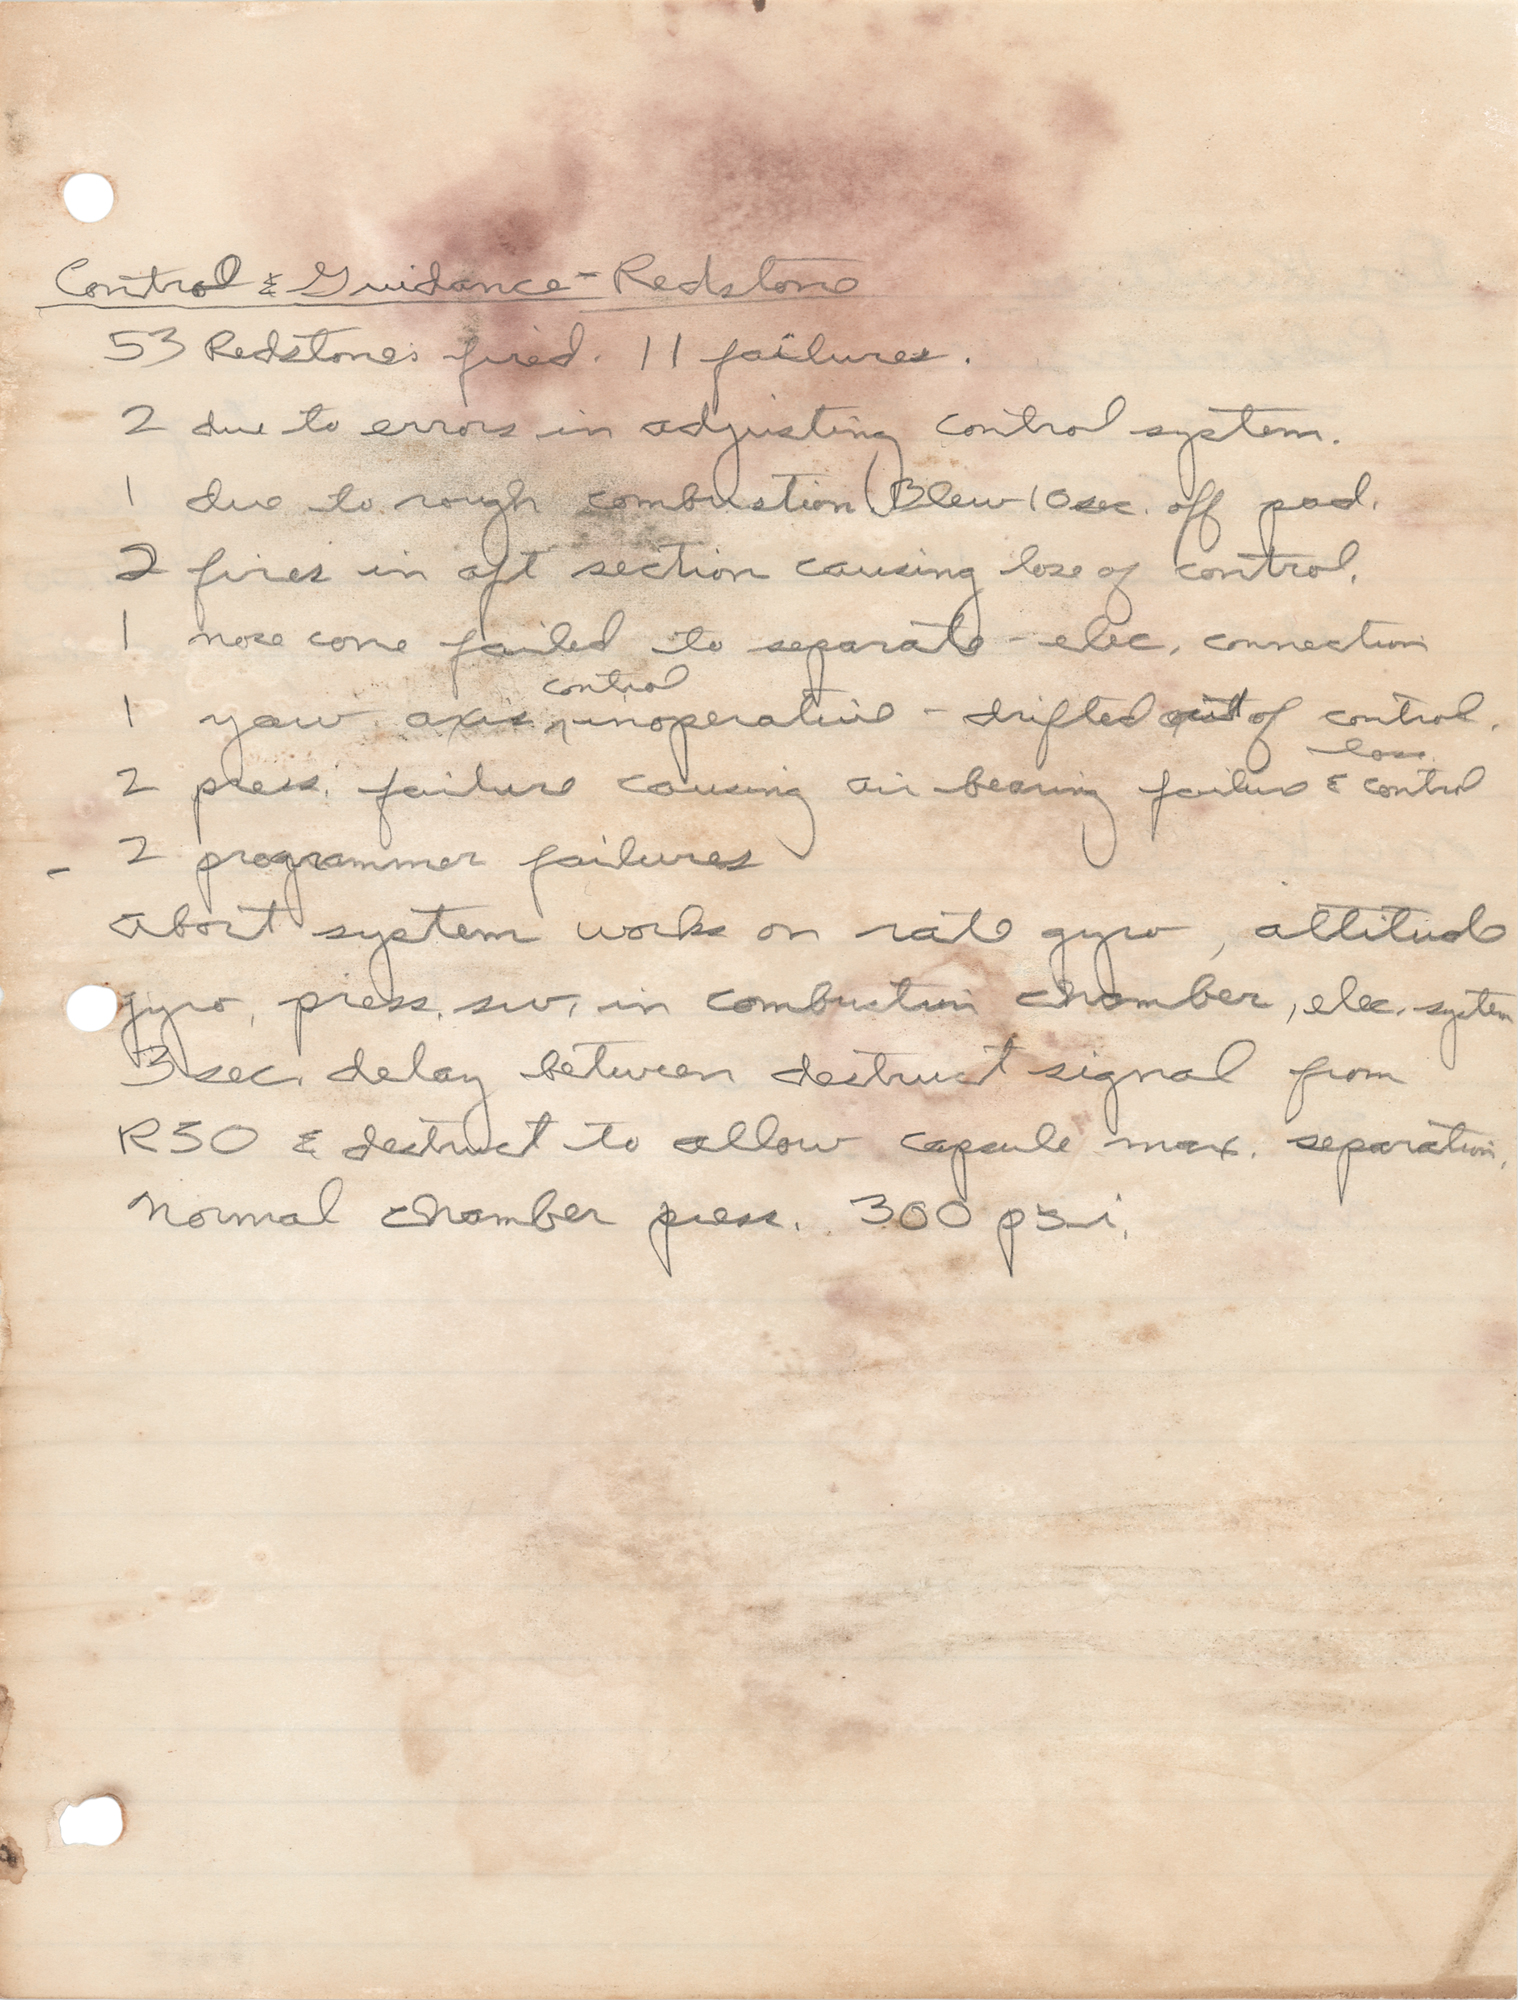 Control & Guidance - Redstone
53 Redstones fired. 11 failures.
2 due to errors in adjusting control system.
1 due to rough combustion (Blew 10 sec. off pad.
2 fires in aft section causing lose of control.
1 nose cone failed to separate - elec. connection
control
1 yaw axis ^ inoperative - drifted out of control.
loss
2 press. failure causing air bearing failure & control
- 2 programmer failures
abort system works on rate gyro, attitude
gyro, press. sw. in combustion chamber, elec. system
3 sec. delay between destruct signal from
RSO & destruct to allow capsule max. separation.
Normal chamber press. 300 psi.